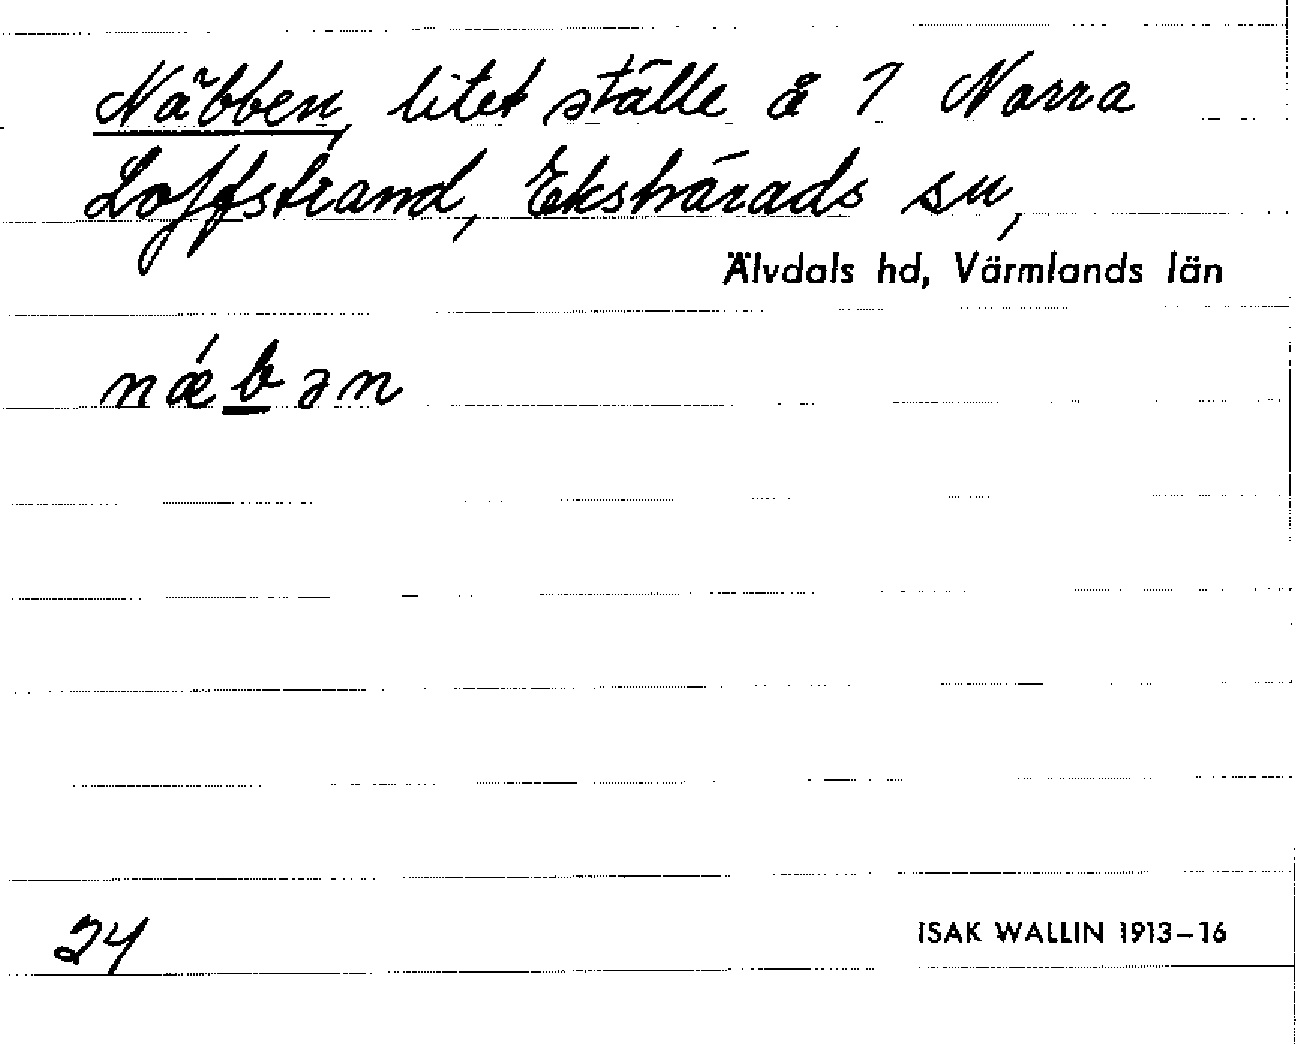 Näbben, litet ställe å 7 Norra
Loffstrand, Ekshärads sn,
Älvdals hd, Värmlands län
nǽbən
24
ISAK WALLIN 1913–16